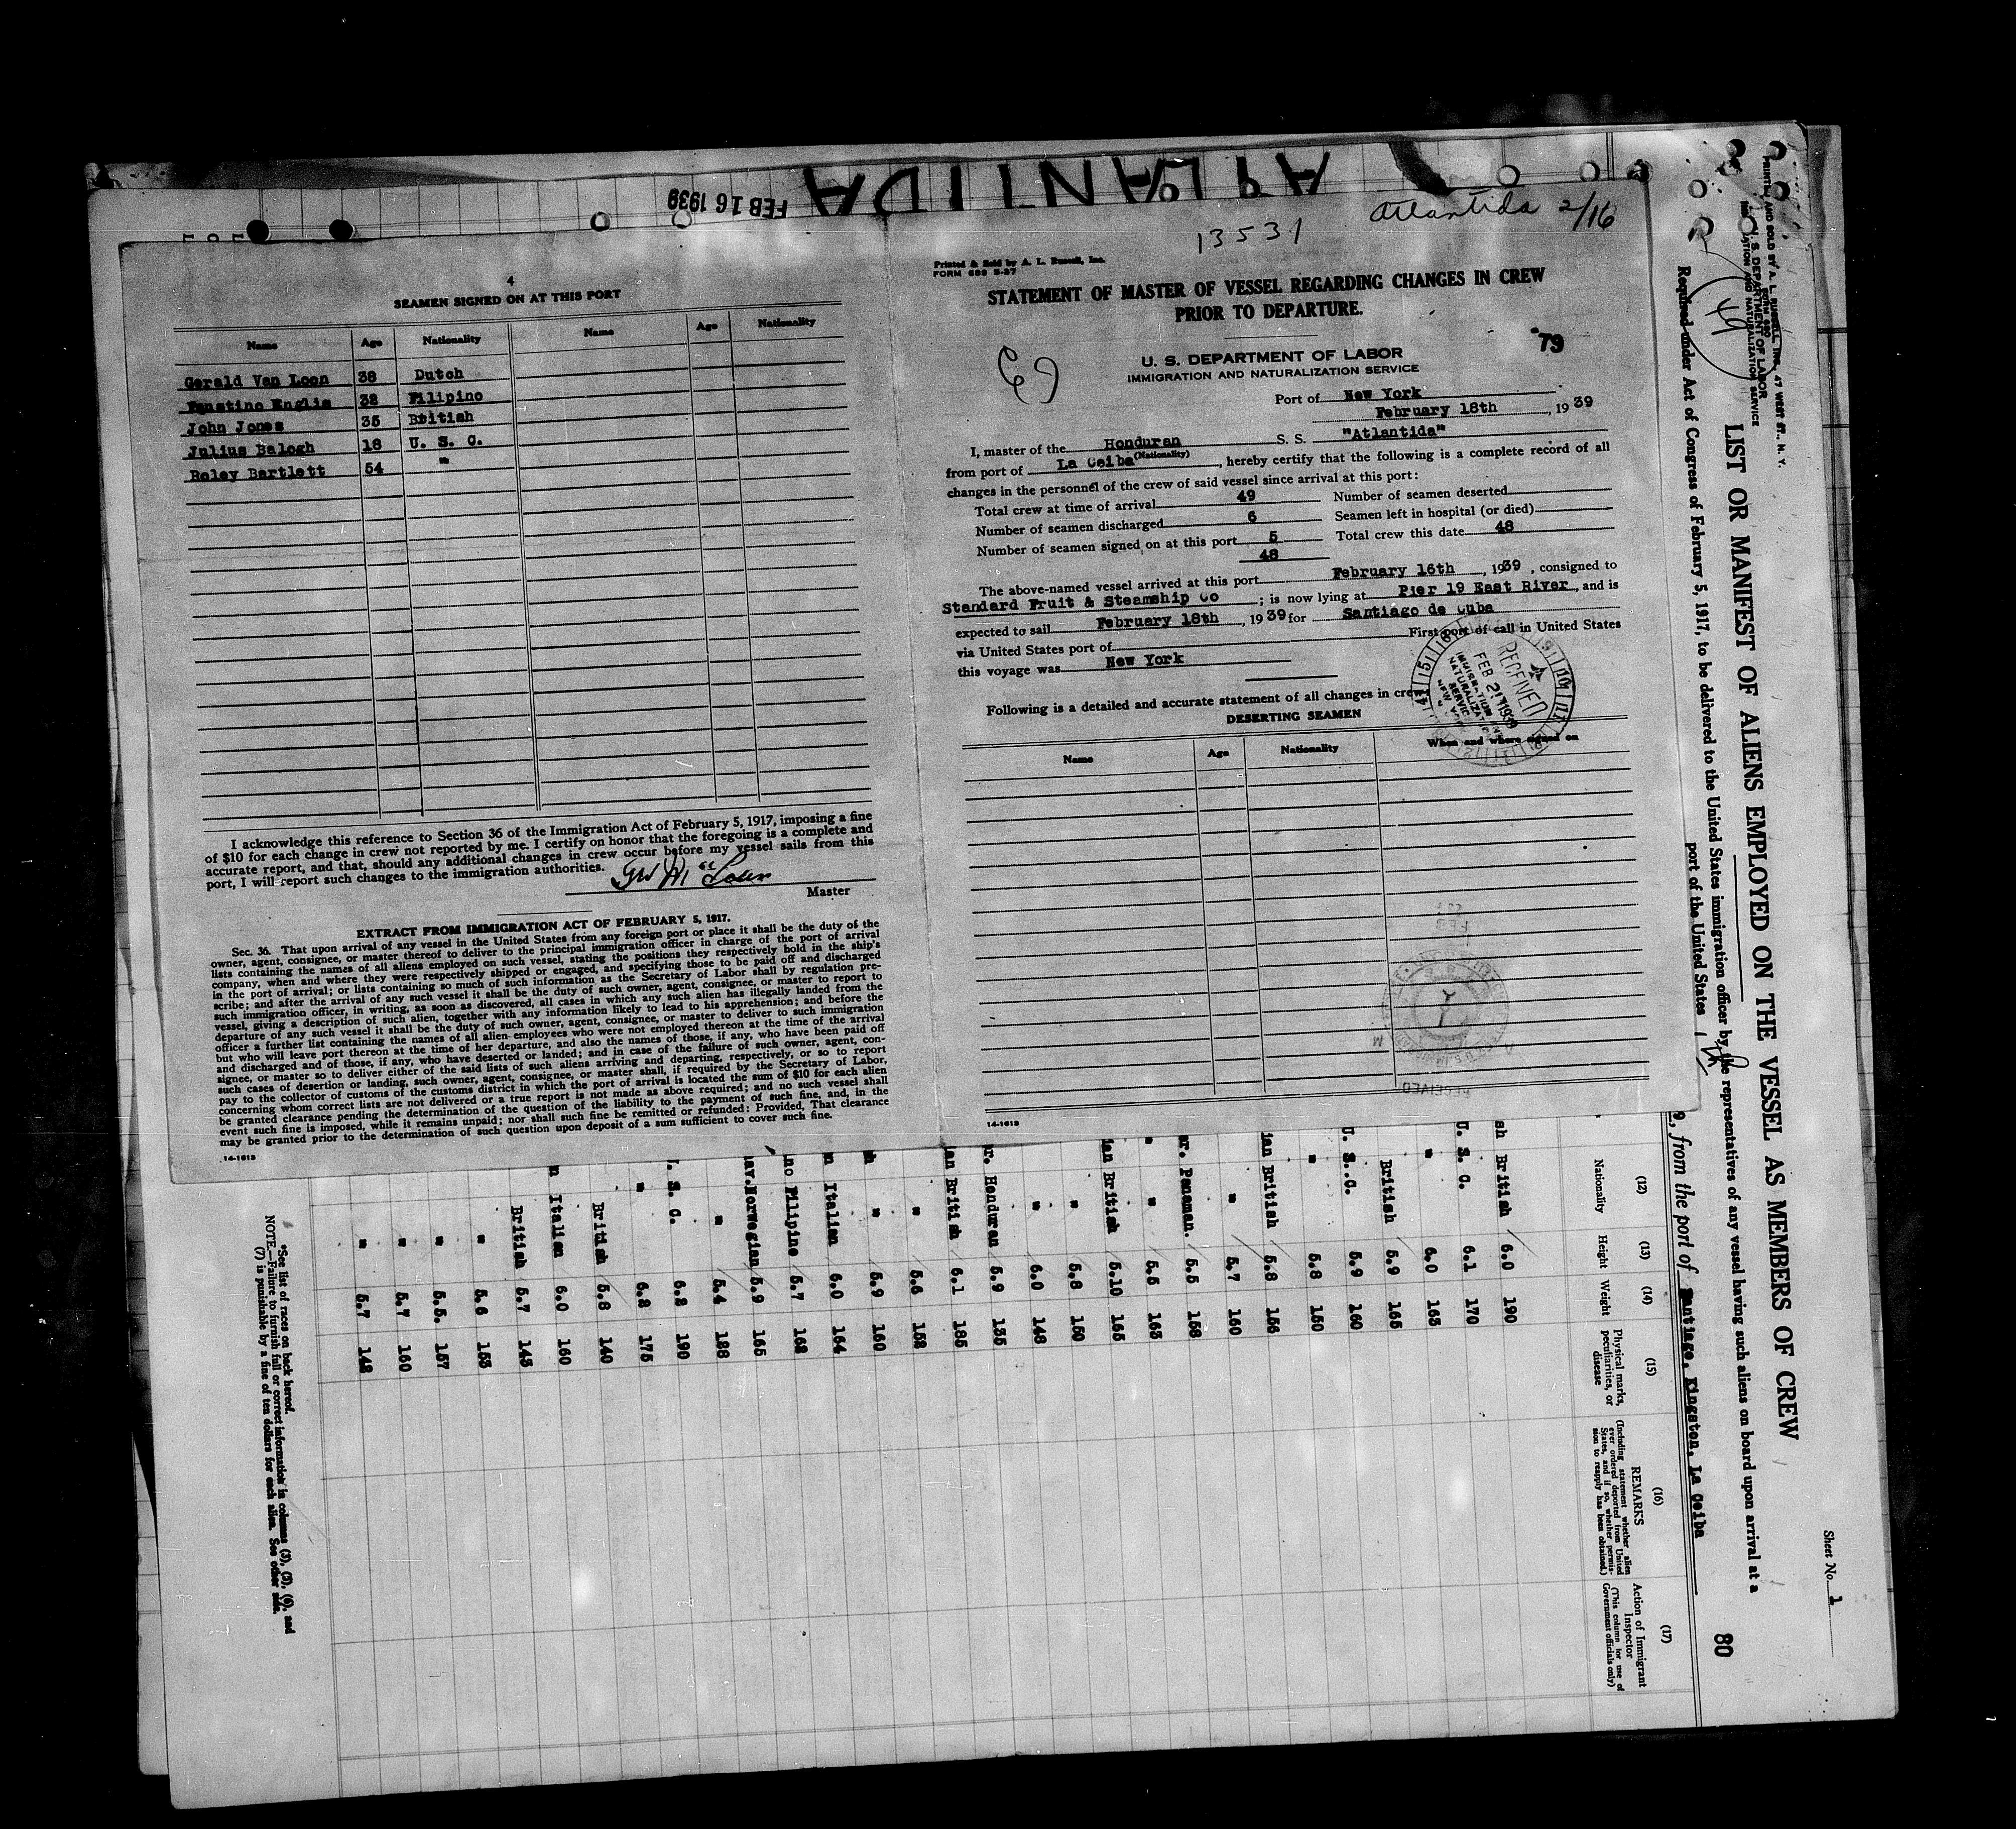 ATLANTIDA
FEB 16 1939
Atlantida 2/16
13531
4
SEAMEN SIGNED ON AT THIS PORT
Name Age Nationality Name Age Nationality
Gerald Van Loon 38 Dutch
Faustino Englis 32 Filipino
John Jones 35 British
Julius Balogh 18 U. S. C.
Roley Bartlett 54 "
I acknowledge this reference to Section 36 of the Immigration Act of February 5, 1917, imposing a fine
of $10 for each change in crew not reported by me. I certify on honor that the foregoing is a complete and
accurate report, and that, should any additional changes in crew occur before my vessel sails from this
port, I will report such changes to the immigration authorities.
Master
EXTRACT FROM IMMIGRATION ACT OF FEBRUARY 5, 1917.
Sec. 36. That upon arrival of any vessel in the United States from any foreign port or place it shall be the duty of the
owner, agent, consignee, or master thereof to deliver to the principal immigration officer in charge of the port of arrival
lists containing the names of all aliens employed on such vessel, stating the positions they respectively hold in the ship's
company, when and where they were respectively shipped or engaged, and specifying those to be paid off and discharged
in the port of arrival; or lists containing so much of such information as the Secretary of Labor shall by regulation pre-
scribe; and after the arrival of any such vessel it shall be the duty of such owner, agent, consignee, or master to report to
such immigration officer, in writing, as soon as discovered, all cases in which any such alien has illegally landed from the
vessel, giving a description of such alien, together with any information likely to lead to his apprehension; and before the
departure of any such vessel it shall be the duty of such owner, agent, consignee, or master to deliver to such immigration
officer a further list containing the names of all alien employees who were not employed thereon at the time of the arrival
but who will leave port thereon at the time of her departure, and also the names of those, if any, who have been paid off
and discharged and of those, if any, who have deserted or landed; and in case of the failure of such owner, agent, con-
signee, or master so to deliver either of the said lists of such aliens arriving and departing, respectively, or so to report
such cases of desertion or landing, such owner, agent, consignee, or master shall, if required by the Secretary of Labor,
pay to the collector of customs of the customs district in which the port of arrival is located the sum of $10 for each alien
concerning whom correct lists are not delivered or a true report is not made as above required; and no such vessel shall
be granted clearance pending the determination of the question of the liability to the payment of such fine, and, in the
event such fine is imposed, while it remains unpaid; nor shall such fine be remitted or refunded: Provided, That clearance
may be granted prior to the determination of such question upon deposit of a sum sufficient to cover such fine.
14-1613
Printed & Sold by A. L. Russell, Inc.
FORM 689 5-37
STATEMENT OF MASTER OF VESSEL REGARDING CHANGES IN CREW
PRIOR TO DEPARTURE.
79
U. S. DEPARTMENT OF LABOR
IMMIGRATION AND NATURALIZATION SERVICE
Port of New York
February 18th, 1939
I, master of the Honduran S. S. "Atlantida"
(Nationality)
from port of La Ceiba, hereby certify that the following is a complete record of all
changes in the personnel of the crew of said vessel since arrival at this port:
Total crew at time of arrival 49 Number of seamen deserted
Number of seamen discharged 6 Seamen left in hospital (or died)
Number of seamen signed on at this port 5 Total crew this date 48
48
The above-named vessel arrived at this port February 16th, 1939, consigned to
Standard Fruit & Steamship Co; is now lying at Pier 19 East River, and is
expected to sail February 18th, 1939 for Santiago de Cuba
via United States port of First port of call in United States
this voyage was New York
RECEIVED
FEB 21 1939
Following is a detailed and accurate statement of all changes in crew
DESERTING SEAMEN
Name Age Nationality When and where signed on
14-1613
Sheet No. 1
80
PRINTED AND SOLD BY A. L. RUSSELL, INC., 47 WEST ST., N. Y.
U. S. DEPARTMENT OF LABOR
49
LIST OR MANIFEST OF ALIENS EMPLOYED ON THE VESSEL AS MEMBERS OF CREW
Required under Act of Congress of February 5, 1917, to be delivered to the United States immigration officer by the representatives of any vessel having such aliens on board upon arrival at a
port of the United States
9, from the port of Santiago, Kingston, La Ceiba
(12) (13) (14) (15) (16) (17)
Nationality Height Weight Physical marks, peculiarities, or disease REMARKS (Including statement whether alien ever ordered deported from United States, and if so, whether permission to reapply has been obtained.) Action of Immigrant Inspector (This column for use of Government officials only)
British 6.0 190
U. S. C. 6.1 170
" 6.0 163
British 5.9 165
U. S. C. 5.9 160
" 5.8 150
British 5.8 156
" 5.7 160
Panaman. 5.5 158
" 5.5 163
British 5.10 165
" 5.8 150
" 6.0 148
Honduran 5.9 135
British 6.1 185
" 5.6 152
" 5.9 160
Italian 6.0 164
Filipine 5.7 162
Norwegian 5.9 165
" 5.4 128
S. C. 6.2 190
" 6.2 175
British 5.8 140
Italian 6.0 160
British 5.7 143
" 5.6 153
" 5.5. 157
" 5.7 160
" 5.7 142
*See list of races on back hereof.
NOTE.—Failure to furnish full or correct information in columns (3), (5), (6), and
(7) is punishable by a fine of ten dollars for each alien. See other side.